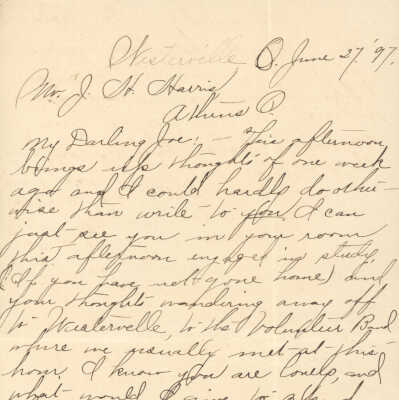 Westerville O. June 27, '97.
Mr. J. H. Harris
Athens O.
My Darling Joe: – This afternoon
brings up thoughts of one week
ago and I could hardly do other-
wise than write to you. I can
just see you in your room
this afternoon engaged in study,
(If you have not gone home) and
your thoughts wandering away off
to Westerville, to the Volunteer Band
where we usually met at this
hour. I know you are lonely, and
what would I give to